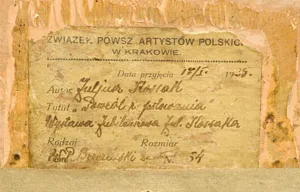 ZWIĄZEK POWSZ. ARTYSTÓW POLSKIC
W KRAKOWIE.
Data przyjęcia 12/I. 19
Autor Juljusz Kossak
Tytuł Powrót z polowania
Wystawa Jubileuszowa Jul. Kossaka
Rodzaj Rozmiar
N. 54